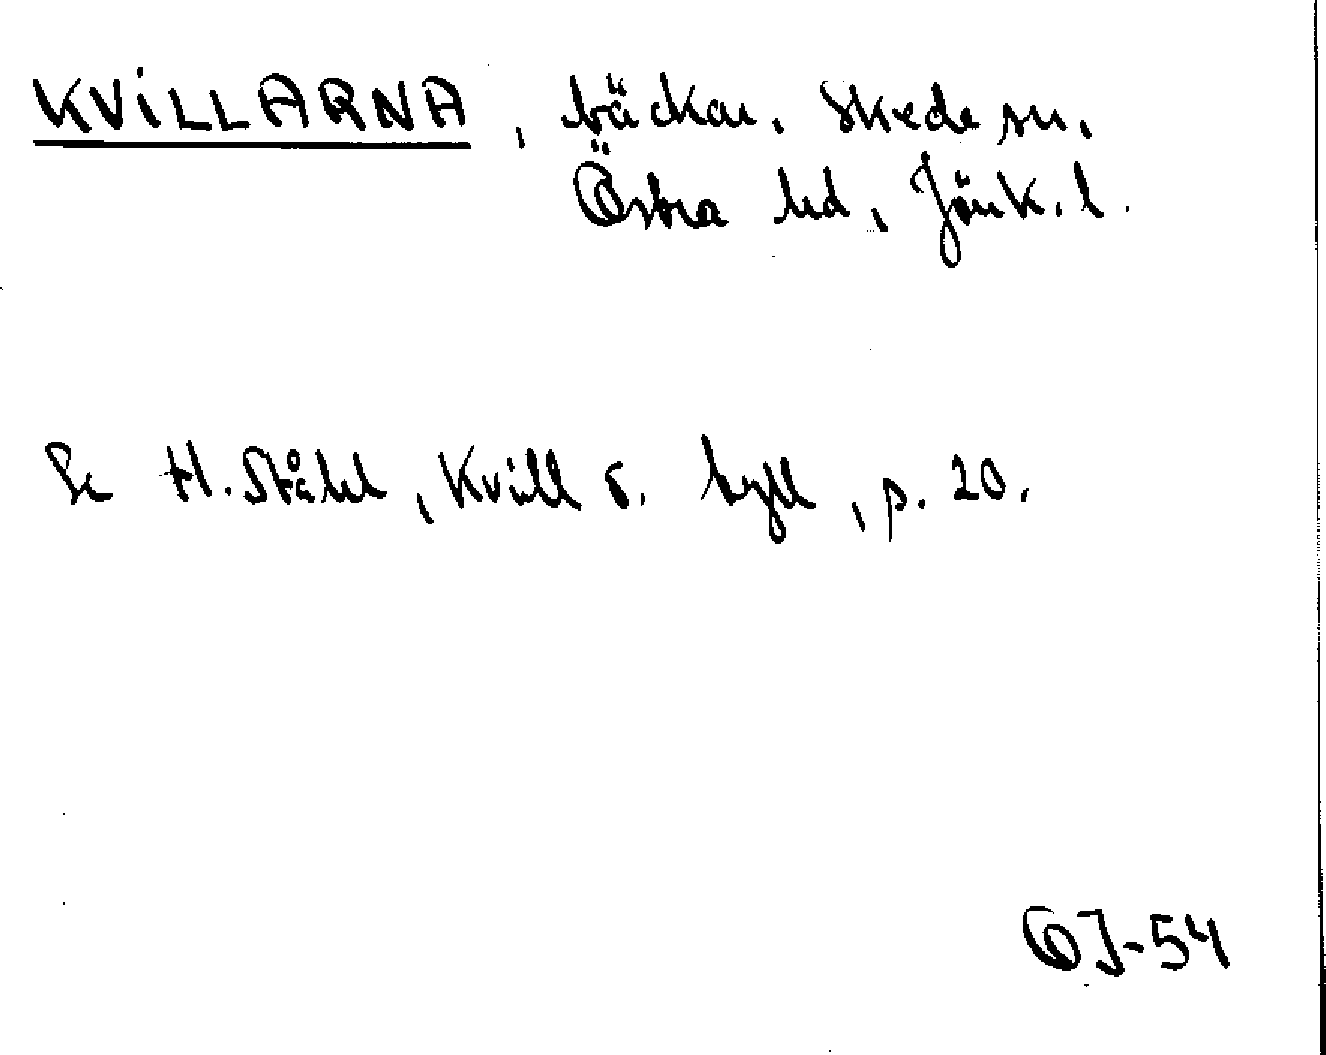 KVILLARNA, bäckar. Skede sn,
Östra hd, Jönk. l.
Se H. Ståhl, Kvill o. hyll, p. 20.
ÖJ-54